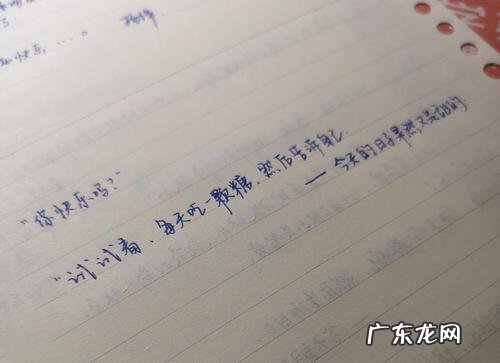 快乐...”
“你快乐吗?”
“试试看,每天吃一颗糖,然后告诉自己
— 今天的日子果然又是甜的.
广东龙网